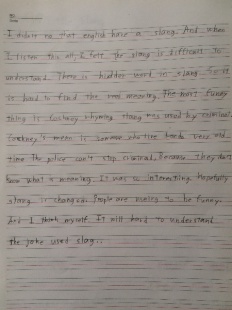 I didn't no that english have a slang. And when
I listen this all, I felt the slang is difficult to
understand. There is hidden word in slang. So it
is hard to find the real meaning. The most funny
thing is cockney rhyming slang was used by criminal.
Cockney's mean is someone who
time the police can't stop criminal. Because they don't
know what is meaning. It was so interesting. Hopefully
slang is changing. People are using to be funny.
And I think myself It will hard to understand
the joke used slag..